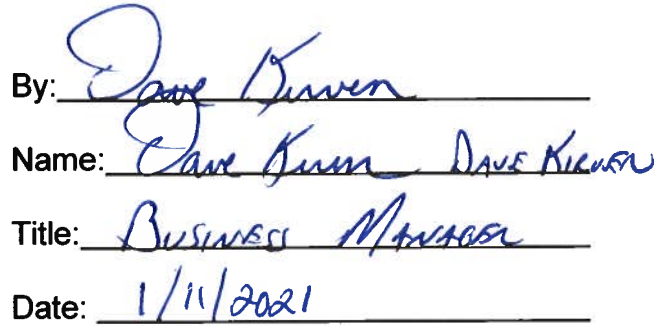 By: Dave Kirven
Name: Dave Kirven DAVE KIRVEN
Title: BUSINESS MANAGER
Date: 1/11/2021